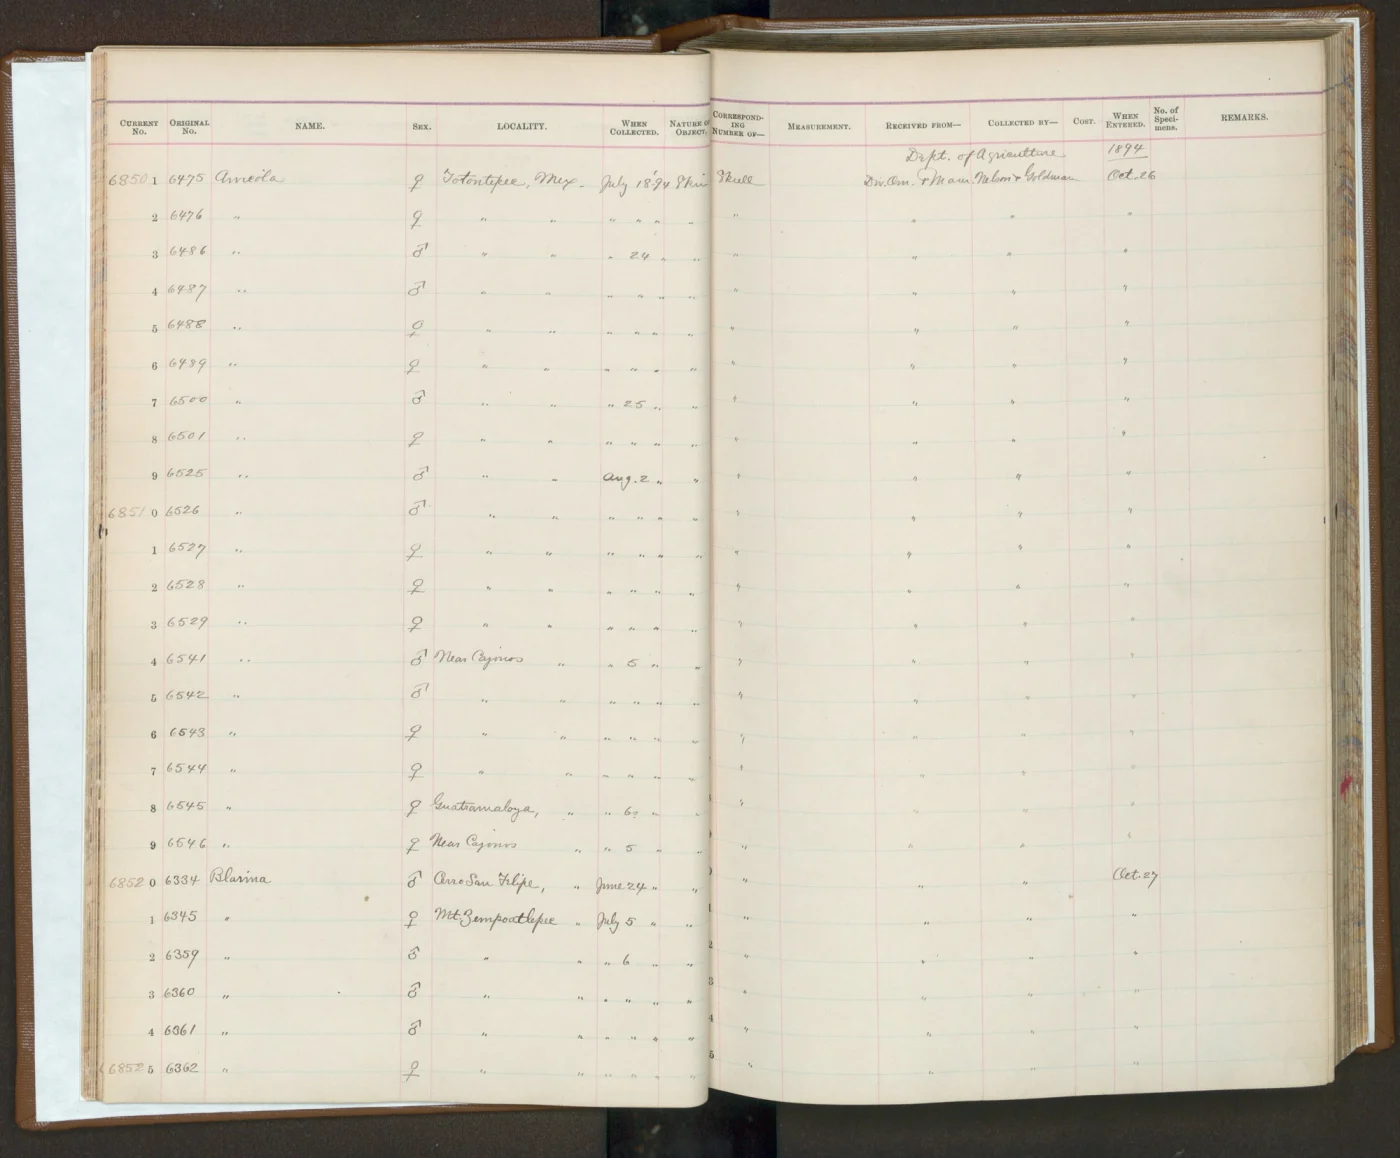 CURRENT No. ORIGINAL No. NAME. SEX. LOCALITY. WHEN COLLECTED. NATURE OF OBJECT. CORRESPONDING NUMBER OF— MEASUREMENT. RECEIVED FROM— COLLECTED BY— COST. WHEN ENTERED. No. of Specimens. REMARKS.
Dept. of Agriculture 1894
68501 6475 Arvicola ♀ Totontepec, Mex. July 18 '94 Skin Skull Div. Orn. & Mam. Nelson & Goldman Oct. 26
2 6476 " ♀ " " " " " " " " " "
3 6486 " ♂ " " " 24 " " " " " "
4 6487 " ♂ " " " " " " " " " "
5 6488 " ♀ " " " " " " " " " "
6 6489 " ♀ " " " " " " " " " "
7 6500 " ♂ " " " 25 " " " " " "
8 6501 " ♀ " " " " " " " " " "
9 6525 " ♂ " " Aug. 2 " " " " " "
68510 6526 " ♂ " " " " " " " " " "
1 6527 " ♀ " " " " " " " " " "
2 6528 " ♀ " " " " " " " " " "
3 6529 " ♀ " " " " " " " " " "
4 6541 " ♂ Near Cajonos " " 5 " " " " " "
5 6542 " ♂ " " " " " " " " " "
6 6543 " ♀ " " " " " " " " " "
7 6544 " ♀ " " " " " " " " " "
8 6545 " ♀ Guatramaloya, " " 6 " " " " " "
9 6546 " ♀ Near Cajonos " " 5 " " " " " "
68520 6334 Blarina ♂ Cerro San Felipe, " June 24 " " " " " Oct. 27
1 6345 " ♀ Mt. Zempoaltepec " July 5 " " " " " "
2 6359 " ♂ " " " 6 " " " " " "
3 6360 " ♂ " " " " " " " " " "
4 6361 " ♂ " " " " " " " " " "
68525 6362 " ♀ " " " " " " " " " "